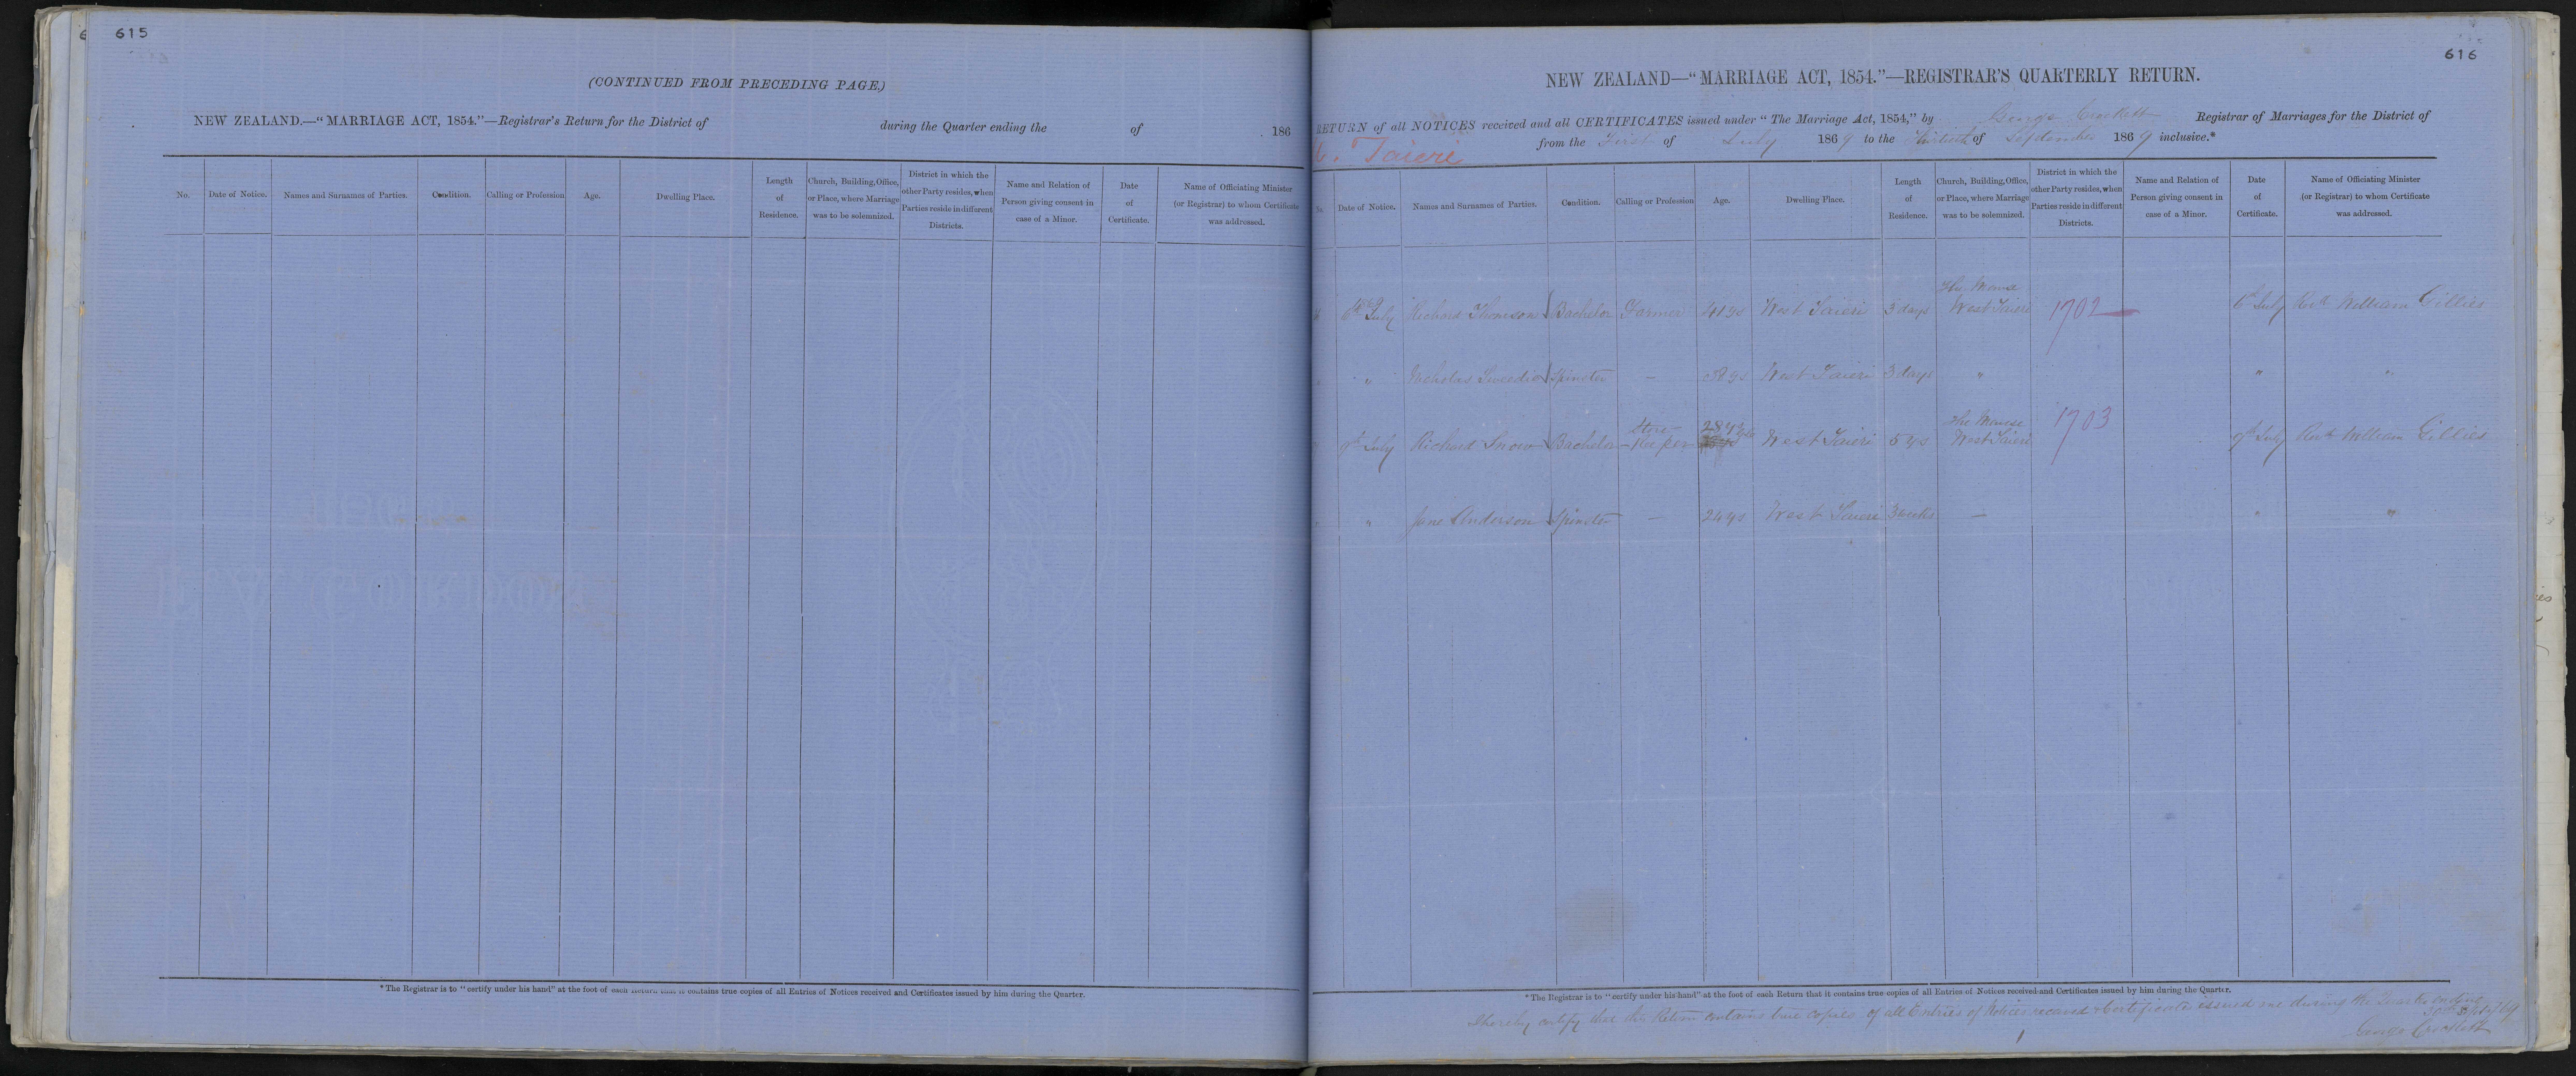 615
(CONTINUED FROM PRECEDING PAGE.)
NEW ZEALAND.—"MARRIAGE ACT, 1854."—Registrar's Return for the District of during the Quarter ending the of 186
No. Date of Notice. Names and Surnames of Parties. Condition. Calling or Profession Age. Dwelling Place. Length of Residence. Church, Building, Office, or Place, where Marriage was to be solemnized. District in which the other Party resides, when Parties reside in different Districts. Name and Relation of Person giving consent in case of a Minor. Date of Certificate. Name of Officiating Minister (or Registrar) to whom Certificate was addressed.
* The Registrar is to "certify under his hand" at the foot of each Return that it contains true copies of all Entries of Notices received and Certificates issued by him during the Quarter.
616
NEW ZEALAND—"MARRIAGE ACT, 1854."—REGISTRAR'S QUARTERLY RETURN.
RETURN of all NOTICES received and all CERTIFICATES issued under "The Marriage Act, 1854," by George Registrar of Marriages for the District of
Taieri from the First of July 1869 to the Thirtieth of September 1869 inclusive.*
No. Date of Notice. Names and Surnames of Parties. Condition. Calling or Profession Age. Dwelling Place. Length of Residence. Church, Building, Office, or Place, where Marriage was to be solemnized. District in which the other Party resides, when Parties reside in different Districts. Name and Relation of Person giving consent in case of a Minor. Date of Certificate. Name of Officiating Minister (or Registrar) to whom Certificate was addressed.
6th July Richard Thomson Bachelor Farmer 41 ys West Taieri 3 days The Manse West Taieri 1702 6th July Revd William Gillies
" Nicholas Spinster — West Taieri 3 days " " "
9th July Richard Snow Bachelor Store-Keeper 28 ys West Taieri 5 ys The Manse West Taieri 1703 9th July Revd William Gillies
" Jane Anderson Spinster — 24 ys West Taieri 3 weeks — " "
* The Registrar is to "certify under his hand" at the foot of each Return that it contains true copies of all Entries of Notices received and Certificates issued by him during the Quarter.
I hereby certify that this Return contains true copies of all Entries of Notices received & Certificates issued during the Quarter ending
30th Sept /69
George